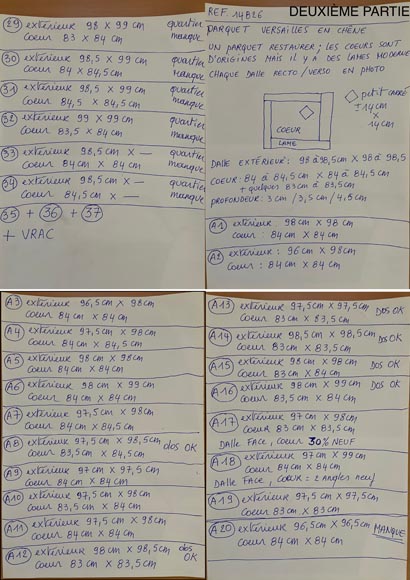 29 extérieur 98 X 99 cm quartier
Coeur 83 X 84 cm manque
30 extérieur 98,5 X 99 cm quartier
Coeur 84 X 84,5 cm manque
31 extérieur 98,5 X 99 cm quartier
Coeur 84 X 84,5 cm manque
32 extérieur 99 X 99 cm quartier
Coeur 83,5 X 84 cm manque
33 extérieur 98,5 cm X — quartier
Coeur 84 cm X 84 cm manque
34 extérieur 98,5 cm X — quartier
Coeur 84,5 cm X — manque
35 + 36 + 37
+ VRAC
REF. 14B26 DEUXIÈME PARTIE
PARQUET VERSAILLES EN CHÊNE
UN PARQUET RESTAURER ; LES COEURS SONT
D'ORIGINES MAIS IL Y A DES LAMES MODERNE
CHAQUE DALLE RECTO/VERSO EN PHOTO
petit carré
± 14 cm
X
14 cm
COEUR
LAME
DALLE EXTÉRIEURE : 98 à 98,5 cm X 98 à 98,5
COEUR : 84 à 84,5 cm X 84 à 84,5 cm
+ quelques 83 cm à 83,5 cm
PROFONDEUR : 3 cm / 3,5 cm / 4,5 cm
A1 extérieur 98 cm X 98 cm
Coeur : 84 cm X 84 cm
A2 extérieur : 96 cm X 98 cm
Coeur : 84 cm X 84 cm
A3 extérieur 96,5 cm X 98 cm
Coeur 84 cm X 84 cm
A4 extérieur 97,5 cm X 98 cm
Coeur 84 cm X 84,5 cm
A5 extérieur 98 cm X 98 cm
Coeur 84 cm X 84 cm
A6 extérieur 98 cm X 99 cm
Coeur 84 cm X 84 cm
A7 extérieur 97,5 cm X 98 cm
Coeur 84 cm X 84,5 cm
A8 extérieur 97,5 cm X 98,5 cm dos OK
Coeur 83,5 cm X 84,5 cm
A9 extérieur 97 cm X 97,5 cm
Coeur 84 cm X 84 cm
A10 extérieur 97,5 cm X 98 cm
Coeur 83,5 cm X 84 cm
A11 extérieur 97,5 cm X 98 cm
Coeur 84 cm X 84 cm
A12 extérieur 98 cm X 98,5 cm dos OK
Coeur 83 cm X 83,5 cm
A13 extérieur 97,5 cm X 97,5 cm Dos OK
Coeur 83 cm X 83,5 cm
A14 extérieur 98,5 cm X 98,5 cm Dos OK
Coeur 83 cm X 83,5 cm
A15 extérieur 98 cm X 98 cm Dos OK
Coeur 83 cm X 84 cm
A16 extérieur 98 cm X 99 cm Dos OK
Coeur 83,5 cm X 84 cm
A17 extérieur 97 cm X 98 cm
Coeur 83 cm X 83,5 cm
Dalle FACE, Coeur 30% NEUF
A18 extérieur 97 cm X 99 cm
Coeur 84 cm X 84 cm
Dalle FACE, Coeur : 2 angles neuf
A19 extérieur 97,5 cm X 97,5 cm
Coeur 83 cm X 83 cm
A20 extérieur 96,5 cm X 96,5 cm MANQUE
Coeur 84 cm X 84 cm